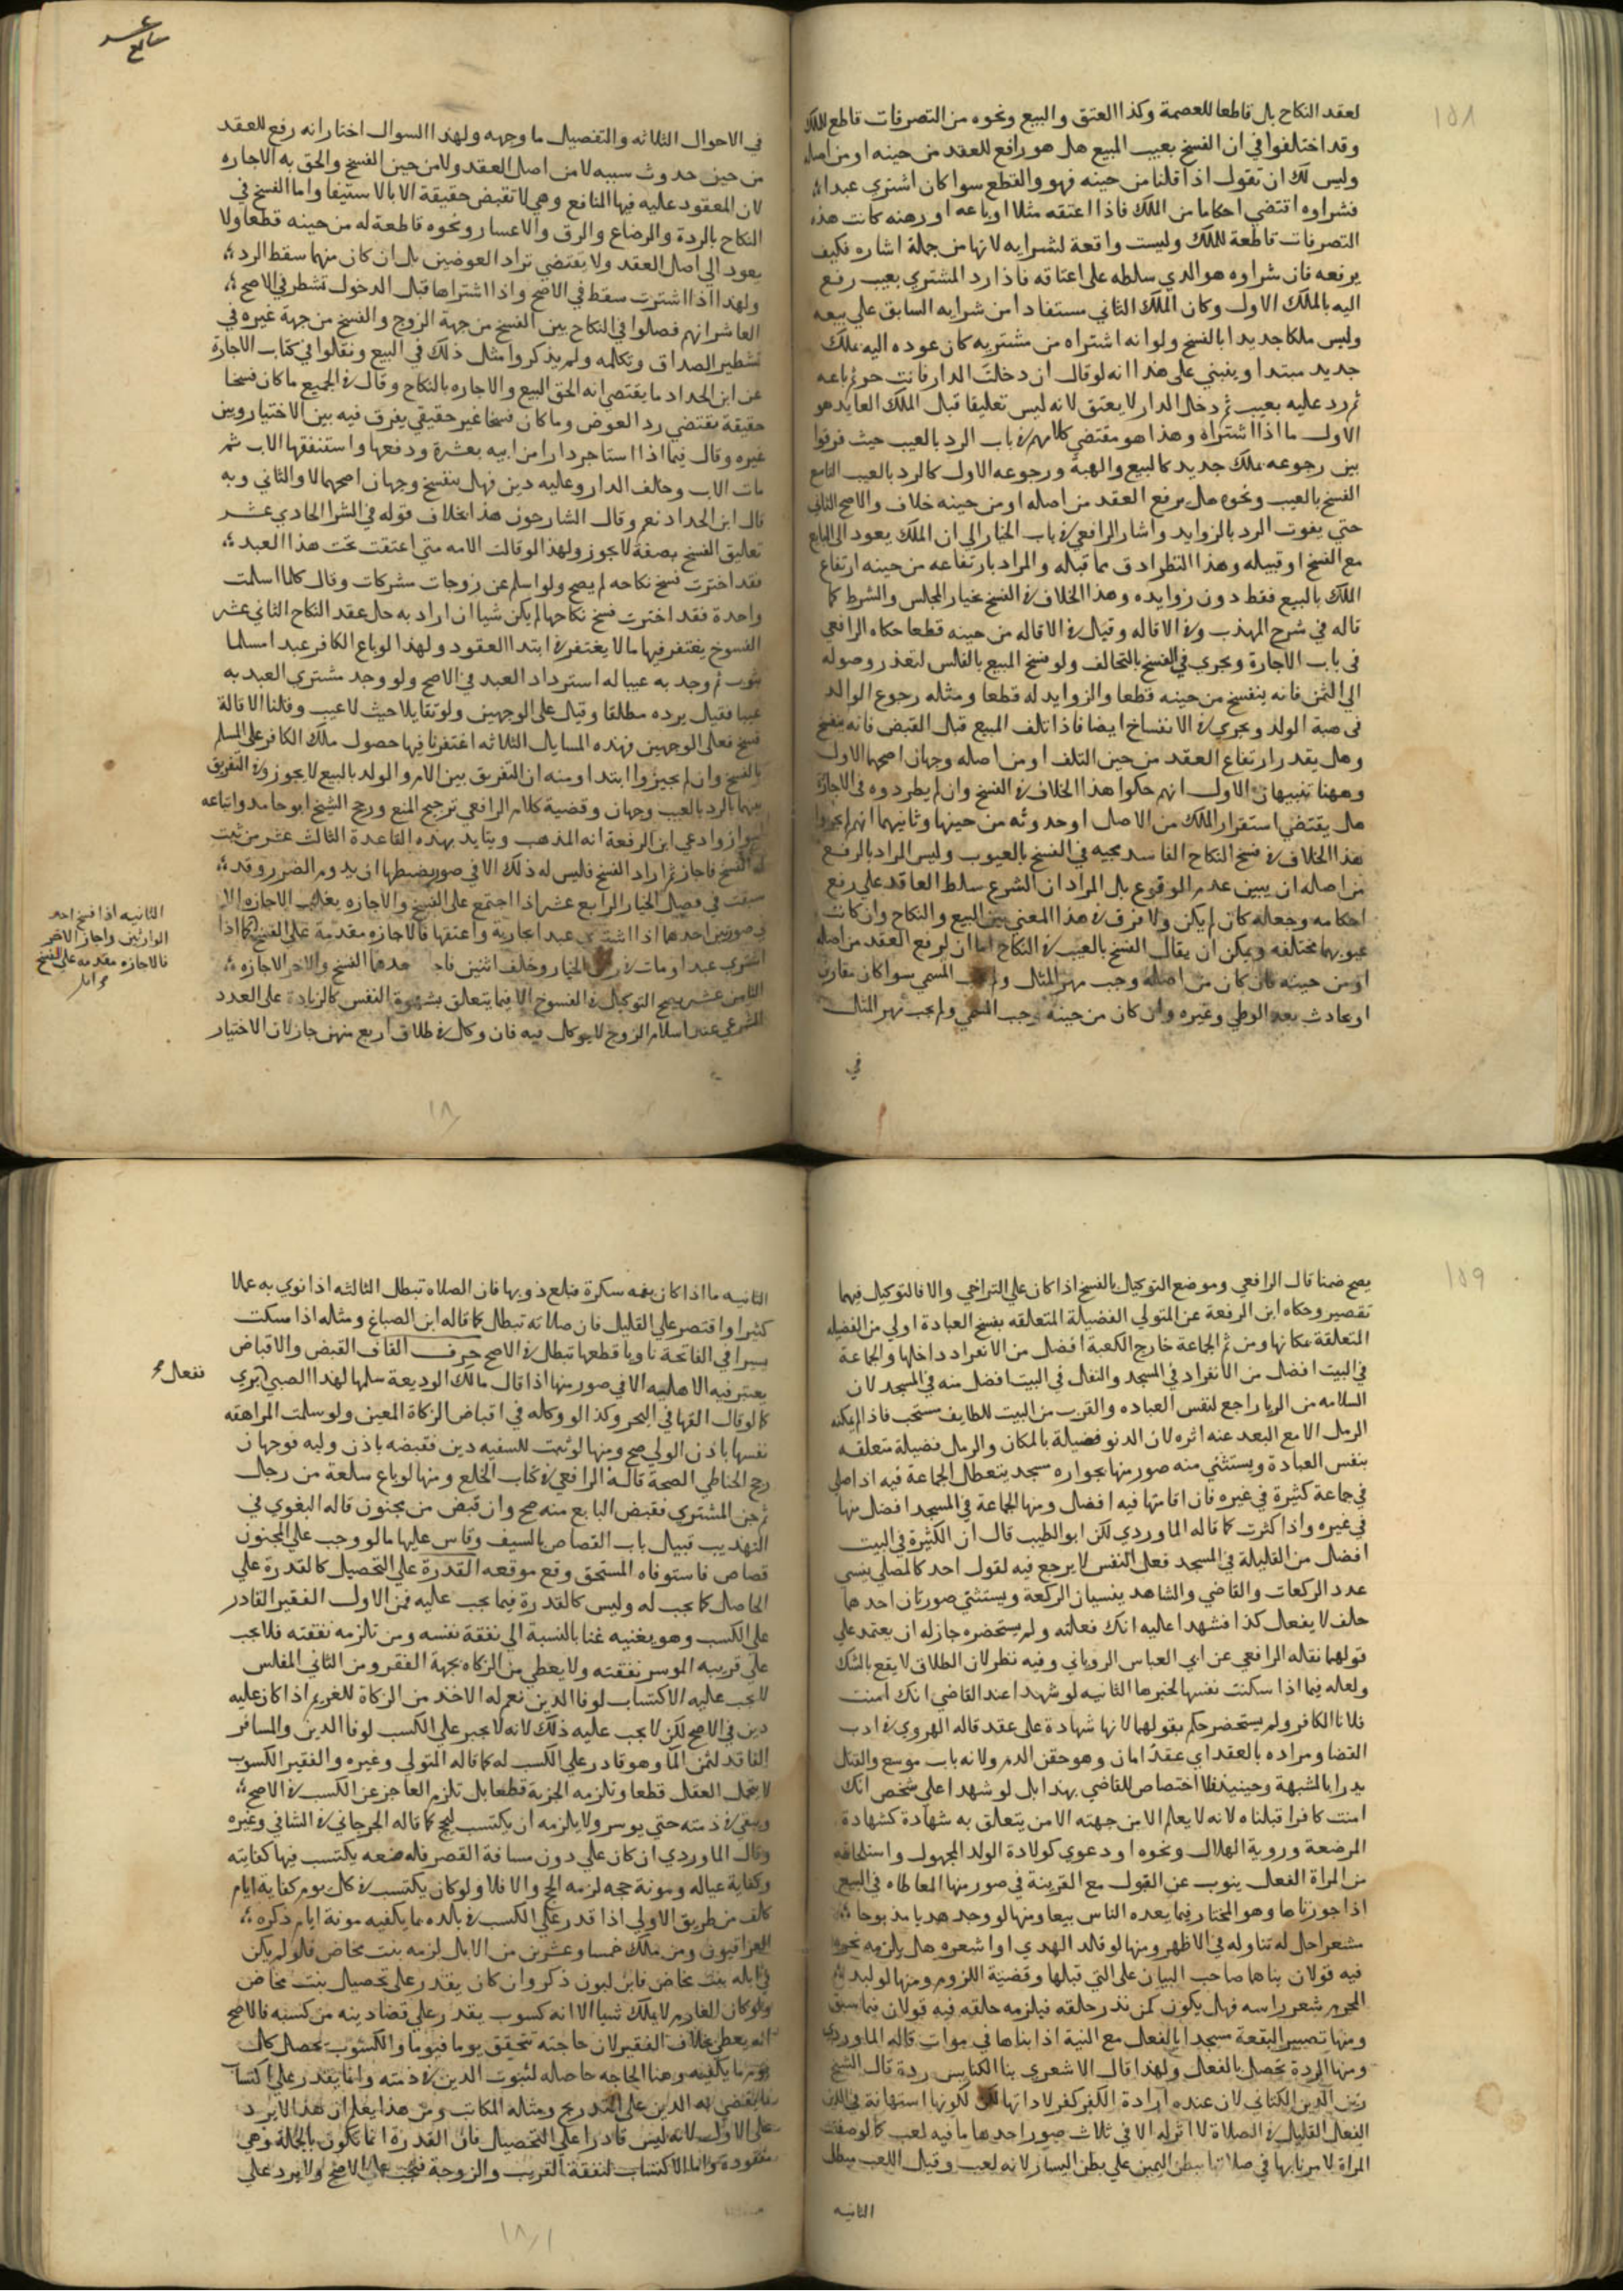 ١٥٨
لعقد النكاح بل قاطعا للعصمة وكذا العتق والبيع ونحوه من التصرفات قاطع للملك
وقد اختلفوا في ان الفسخ بعيب المبيع هل هو رافع للعقد من حينه او من اصله
وليس لك ان تقول اذا قلنا من حينه فهو والقطع سوا كان اشتري عبدا
فشراوه اقتضي احكاما من الملك فاذا اعتقه مثلا او باعه او رهنه كانت هذه
التصرفات قاطعة للملك وليست واقعة لشرايه لانها من جملة اشاره فكيف
يرفعه فان شراوه هو الذي سلطه على اعتاقه فاذا رد المشتري بعيب رفع
اليه بالملك الاول وكان الملك الثاني مستفادا من شرايه السابق علي بيعه
وليس ملكا جديدا بالفسخ ولو انه اشتراه من مشتريه كان عوده اليه بملك
جديد مبتدا وينبني على هذا انه لو قال ان دخلت الدار فانت حر ثم باعه
ثم رد عليه بعيب ثم دخل الدار لا يعتق لانه ليس تعليقا قبل الملك العايد هو
الاول ما اذا اشتراه وهذا هو مقتضي كلامهم في باب الرد بالعيب حيث فرقوا
بين رجوعه بملك جديد كالبيع والهبة ورجوعه الاول كالرد بالعيب التاسع
الفسخ بالعيب ونحوه هل يرفع العقد من اصله او من حينه خلاف والاصح الثاني
حتي يفوت الرد بالزوايد واشار الرافعي في باب الخيار الي ان الملك يعود الى البايع
مع الفسخ او قبيله وهذا النظر ادق مما قبله والمراد بارتفاعه من حينه ارتفاع
الملك بالبيع فقط دون زوايده وهذا الخلاف في الفسخ بخيار المجلس والشرط كما
قاله في شرح المهذب وفي الاقاله وقيل في الاقاله من حينه قطعا حكاه الرافعي
في باب الاجارة ويجري في الفسخ بالتحالف ولو فسخ المبيع بالفلس لتعذر وصوله
الي الثمن فانه ينفسخ من حينه قطعا والزوايد له قطعا ومثله رجوع الوالد
في هبة الولد ويجري في الانفساخ ايضا فاذا تلف المبيع قبل القبض فانه ينفسخ
وهل يقدر ارتفاع العقد من حين التلف او من اصله وجهان اصحهما الاول
وههنا تنبيهان الاول انهم حكوا هذا الخلاف في الفسخ وان لم يطردوه في الاجازة
هل يقتضي استقرار الملك من الاصل او حدوثه من حينها وثانيهما انهم لم يجروا
هذا الخلاف في فسخ النكاح الفاسد مجيه في الفسخ بالعيوب وليس المراد بالرفع
من اصله ان يبين عدم الوقوع بل المراد ان الشرع سلط العاقد علي رفع
احكامه وجعله كان لم يكن ولا فرق في هذا المعني بين البيع والنكاح وان كانت
عيوبهما مختلفه ويمكن ان يقال الفسخ بالعيب في النكاح اما ان لم رفع العقد من اصله
او من حينه فان كان من اصله وجب مهر المثل ولم المسمي سوا كان مقارن
او حادث بعد الوطي وغيره وان كان من حينه وجب المسمي ولم يجب مهر المثل
في
في الاحوال الثلاثه والتفصيل ما وجهه ولهذا السوال اختار انه رفع للعقد
من حين حدوث سببه لا من اصل العقد ولا من حين الفسخ والحق به الاجاره
لان المعقود عليه فيها المنافع وهي لا تقبض حقيقة الا بالاستيفا واما الفسخ في
النكاح بالردة والرضاع والرق والاعسار ونحوه قاطعة له من حينه قطعا ولا
يعود الي اصل العقد ولا يقتضي تراد العوضين بل ان كان منهما سقط الرد
ولهذا اذا اشترت سقط في الاصح واذا اشتراها قبل الدخول تشطر في الاصح
العاشر انهم فصلوا في النكاح بين الفسخ من جهة الزوج والفسخ من جهة غيره في
تشطير الصداق وتكلمه ولم يذكروا مثل ذلك في البيع ونقلوا في كتاب الاجارة
عن ابن الحداد ما يقتضي انه الحق البيع والاجاره بالنكاح وقال في الجميع ما كان فسخا
حقيقة يقتضي رد العوض وما كان فسخا غير حقيقي يفرق فيه بين الاختيار وبين
غيره وقال فيما اذا استاجر دارا من ابيه بعشرة ودفعها واستنفقها الاب ثم
مات الاب وخلف الدار وعليه دين فهل ينفسخ وجهان اصحهما لا والثاني وبه
قال ابن الحداد نعم وقال الشارحون هذا بخلاف قوله في الشرا الحادي عشر
تعليق الفسخ بصفة لا يجوز ولهذا لو قالت الامه متي اعتقت تحت هذا العبد
فقد اخترت فسخ نكاحه لم يصح ولو اسلم عن زوجات مشركات وقال كلما اسلمت
واحدة فقد اخترت فسخ نكاحها لم يكن شيا ان اراد به حل عقد النكاح الثاني عشر
الفسوخ يغتفر فيها ما لا يغتفر في ابتدا العقود ولهذا لو باع الكافر عبدا مسلما
بثوب ثم وجد به عيبا له استرداد العبد في الاصح ولو وجد مشتري العبد به
عيبا فقيل يرده مطلقا وقيل على الوجهين ولو تقايلا حيث لا عيب وقلنا الاقالة
فسخ فعلى الوجهين فهذه المسايل الثلاثه اغتفرنا فيها حصول ملك الكافر على المسلم
بالفسخ وان لم يجيزوا ابتدا ومنه ان التفريق بين الام والولد بالبيع لا يجوز وفي التفريق
بينهما بالرد بالعيب وجهان وقضية كلام الرافعي ترجيح المنع ورجح الشيخ ابو حامد واتباعه
الجواز وادعي ابن الرفعة انه المذهب ويتايد بهذه القاعدة الثالث عشر من ثبت
له الفسخ فاجاز ثم اراد الفسخ فليس له ذلك الا في صور يضبطها ان يدوم الضرر وقد
سبقت في فصل الخيار الرابع عشر اذا اجتمع على الفسخ والاجازه يغلب الاجازه الا
في صورتين احدها اذا اشتري عبدا بجارية واعتقها فالاجازه مقدمة علي الفسخ كما اذا
اشتري عبدا ومات في الخيار وخلف اثنين احدهما الفسخ والاخر الاجازه
الثامن عشر يصح التوكيل في الفسوخ الا فيما يتعلق بشهوة النفس كالزيادة على العدد
الشرعي عند اسلام الزوج لا يوكل فيه فان وكل في طلاق اربع منهن جاز لان الاختيار
الثانيه اذا فسخ احد
الوارثين واجاز الاخر
فالاجازه مقدمه على الفسخ
١٨٠
١٥٩
يصح ضمنا قال الرافعي وموضع التوكيل بالفسخ اذا كان على التراخي والا فالتوكيل فيهما
تقصير وحكاه ابن الرفعة عن المتولي الفضيلة المتعلقه بنفس العبادة اولي من الفضيله
المتعلقة بمكانها ومن ثم الجماعة خارج الكعبة افضل من الانفراد داخلها والجماعة
في البيت افضل من الانفراد في المسجد والنفل في البيت افضل منه في المسجد لان
السلامه من الريا راجع لنفس العباده والقرب من البيت للطايف مستحب فاذا لم يمكنه
الرمل الا مع البعد عنه اثره لان الدنو فضيلة بالمكان والرمل فضيلة متعلقه
بنفس العبادة ويستثني منه صور منها بجواره مسجد يتعطل الجماعة فيه اذا صلي
في جماعة كثيرة في غيره فان اقامتها فيه افضل ومنها الجماعة في المسجد افضل منها
في غيره واذا كثرت كما قاله الماوردي لكن ابو الطيب قال ان الكثيرة في البيت
افضل من القليلة في المسجد فعل النفس لا يرجع فيه لقول احد كالمصلي ينسي
عدد الركعات والقاضي والشاهد ينسيان الركعة ويستثني صورتان احدهما
حلف لا يفعل كذا فشهدا عليه انك فعلته ولم يستحضره جاز له ان يعتمد علي
قولهما نقله الرافعي عن ابي العباس الروياني وفيه نظر لان الطلاق لا يقع بالشك
ولعله فيما اذا سكنت نفسه لخبرها الثانيه لو شهدا عند القاضي انك امنت
فلانا الكافر ولم يستحضر حكم بقولهما لانها شهادة على عقد قاله الهروي في ادب
القضا ومراده بالعقد اي عقد امان وهو حقن الدم ولانه باب موسع والقتل
يدرا بالشبهة وحينيذ فلا اختصاص للقاضي بهذا بل لو شهدا علي شخص انك
امنت كافرا قبلناه لانه لا يعلم الا من جهته الا من يتعلق به شهادة كشهادة
المرضعة وروية الهلال ونحوه او دعوي كولادة الولد المجهول واستلحاقه
من المراة الفعل ينوب عن القول مع القرينة في صور منها المعاطاه في البيع
اذا جوزناها وهو المختار فيما يعده الناس بيعا ومنها لو وجد هديا مذبوحا
مشعرا حل له تناوله في الاظهر ومنها لو قلد الهدي او اشعره هل يلزمه نحره
فيه قولان بناها صاحب البيان على التي قبلها وقضية اللزوم ومنها لو لبد
المحرم شعر راسه فهل يكون كمن نذر حلقه فيلزمه حلقه فيه قولان فيما سبق
ومنها تصيير البقعة مسجدا بالفعل مع النية اذا بناها في موات قاله الماوردي
ومنها الردة تحصل بالفعل ولهذا قال الاشعري بنا الكنايس ردة قال الشيخ
زين الدين الكتاني لان عنده ارادة الكفر كفر لا داتها لكونها استهانة في الدين
الفعل القليل في الصلاة لا اثر له الا في ثلاث صور احدها ما فيه لعب كما لو صفقت
المراة لامر نابها في صلاتها ببطن اليمين علي بطن اليسار لانه لعب وقيل اللعب مبطل
الثانيه
الثانيه ما اذا كان بفمه سكرة فبلع ذوبها فان الصلاه تبطل الثالثه اذا نوي به عملا
كثيرا واقتصر علي القليل فان صلاته تبطل كما قاله ابن الصباغ ومثله اذا سكت
يسيرا في الفاتحة ناويا قطعها تبطل في الاصح حرف القاف القبض والاقباض
يعتبر فيه الاهليه الا في صور منها اذا قال مالك الوديعة سلمها لهذا الصبي بري
كما لو قال القها في البحر وكذا لو وكله في اقباض الزكاة المعين ولو سلمت المراهقه
نفسها باذن الولي صح ومنها لو ثبت للسفيه دين فقبضه باذن وليه فوجهان
رجح الحناطي الصحة قاله الرافعي في كتاب الخلع ومنها لو باع سلعة من رجل
ثم جن المشتري فقبض البايع منه صح وان قبض من مجنون قاله البغوي في
التهذيب قبيل باب القصاص بالسيف وقاس عليها ما لو وجب على المجنون
قصاص فاستوفاه المستحق وقع موقعه القدرة علي التحصيل كالقدرة علي
الحاصل كما يجب له وليس كالقدرة فيما يجب عليه فمن الاول الفقير القادر
علي الكسب وهو يغنيه غنا بالنسبة الي نفقة نفسه ومن تلزمه نفقته فلا يجب
علي قريبه الموسر نفقته ولا يعطي من الزكاه بجهة الفقر ومن الثاني المفلس
لا يجب عليه الاكتساب لوفا الدين نعم له الاخذ من الزكاة للغريم اذا كان عليه
دين في الاصح لكن لا يجب عليه ذلك لانه لا يجبر علي الكسب لوفا الدين والمسافر
الفاقد لثمن الما وهو قادر علي الكسب له كما قاله المتولي وغيره والفقير الكسوب
لا يتحمل العقل قطعا وتلزمه الجزية قطعا بل تلزم العاجز عن الكسب في الاصح
ويبقي في ذمته حتي يوسر ولا يلزمه ان يكتسب ليحج كما قاله الجرجاني في الشافي وغيره
وقال الماوردي ان كان علي دون مسافة القصر فله صنعه يكتسب فيها كفايته
وكفاية عياله ومونة حجه لزمه الحج والا فلا ولو كان يكتسب في كل يوم كفاية ايام
كلف من طريق الاولي اذا قدر علي الكسب في بلده بما يكفيه مونة ايام ذكره
العراقيون ومن ملك خمسا وعشرين من الابل لزمه بنت مخاض فلو لم يكن
في ابله بنت مخاض فابن لبون ذكر وان كان يقدر على تحصيل بنت مخاض
ولو كان الغارم لا يملك شيا الا انه كسوب يقدر علي قضا دينه من كسبه فالاصح
انه يعطى بخلاف الفقير لان حاجته تتحقق يوما فيوما والكسوب يحصل كل
يوم ما يكفيه وهنا الحاجه حاصله لثبوت الدين في ذمته وانما يقدر علي اكتساب
ما يقضي به الدين على التدريج ومثله المكاتب ومن هذا يعلم ان هذا لا يرد
على الاول لانه ليس قادرا علي التحصيل فان القدرة انما تكون بالحالة وهي
مفقودة واما الاكتساب لنفقة القريب والزوجة فيجب على الاصح ولا يرد علي
١٨١